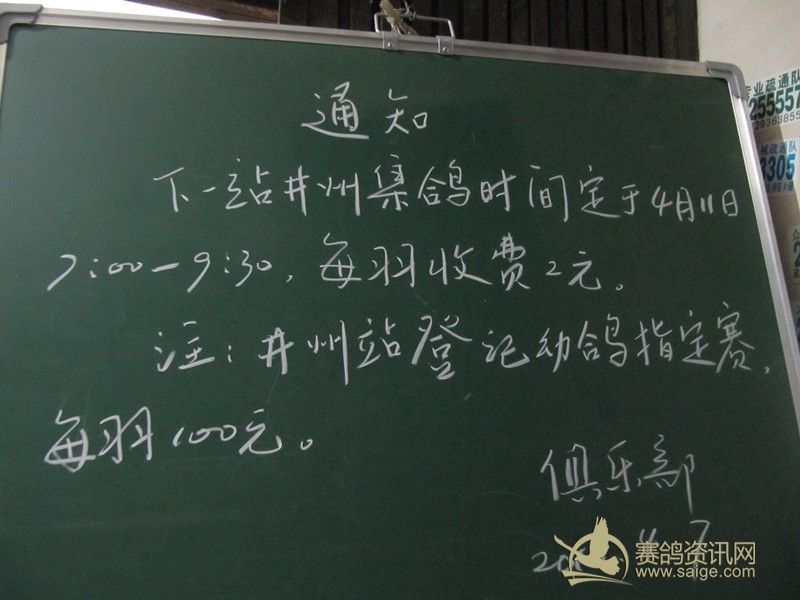 通知
下一站井州集鸽时间定于4月11日
7:00-9:30，每羽收费2元。
注：井州站登记动鸽指定赛，
每羽100元。
俱乐部
赛鸽资讯网
www.saige.com
专业疏通队
255557
疏通队
8305